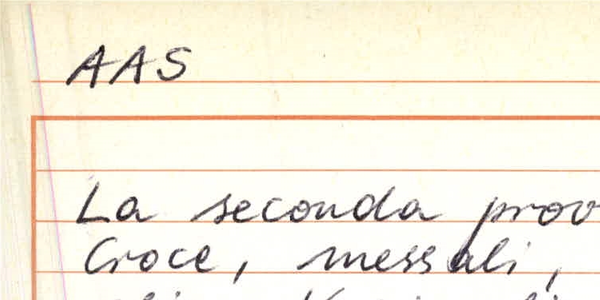 AAS
La seconda prov
Croce, messali,